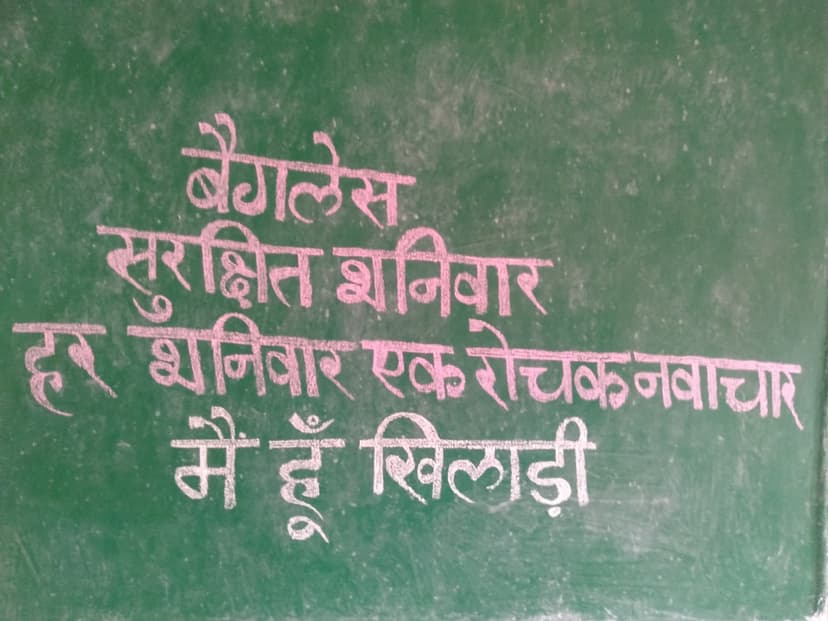 बैगलेस
सुरक्षित शनिवार
हर शनिवार एक रोचक नवाचार
मैं हूँ खिलाड़ी